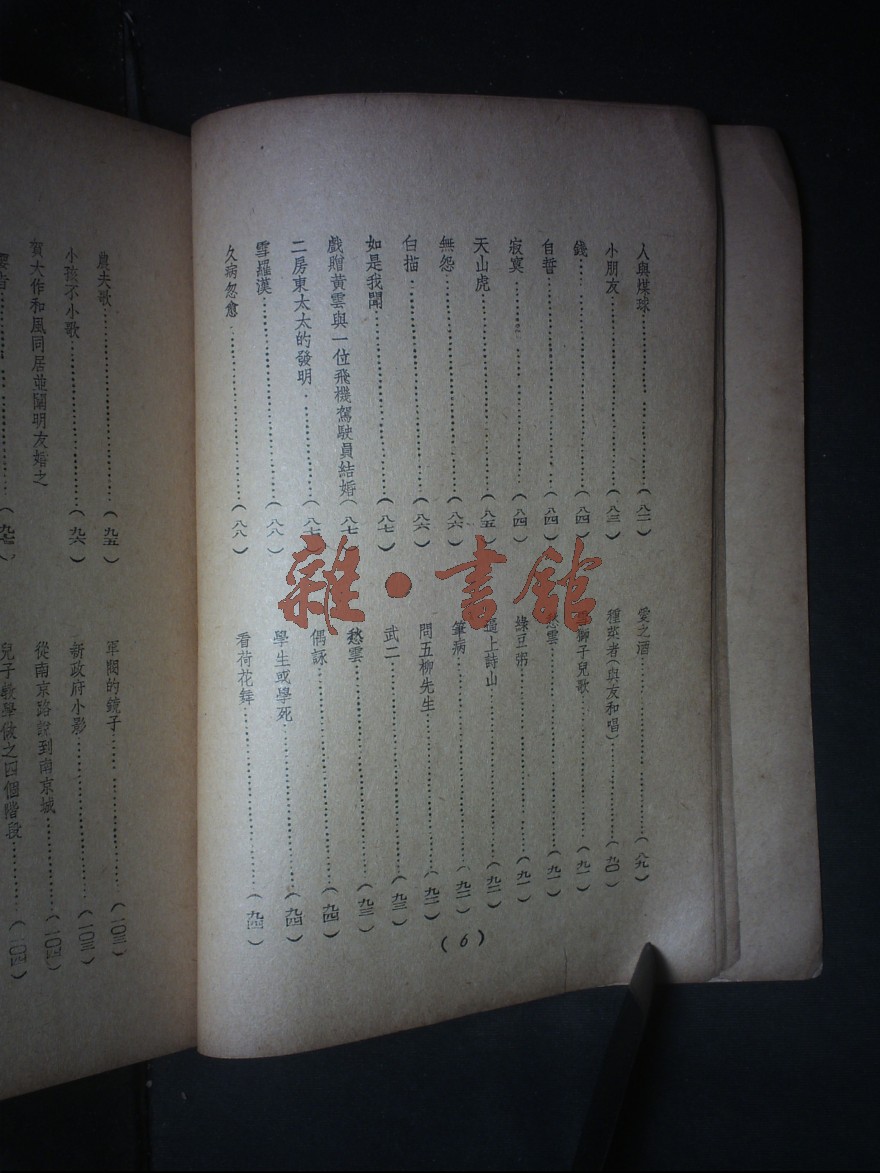 人與煤球……（八一）
小朋友……（八三）
錢……（八四）
自誓……（八四）
寂寞……（八四）
天山虎……（八五）
無怨……（八六）
白描……（八六）
如是我聞……（八七）
戲贈黃雲與一位飛機駕駛員結婚（八七）
二房東太太的發明……（八七）
雪羅漢……（八八）
久病忽愈……（八八）
愛之酒……（八九）
種菜者（與友和唱）……（九〇）
獅子兒歌……（九一）
雲……（九一）
綠豆粥……（九一）
上詩山……（九二）
筆病……（九二）
問五柳先生……（九二）
武二……（九三）
愁雲……（九三）
偶詠……（九四）
學生或學死……（九四）
看荷花舞……（九四）
（6）
農夫歌……（九五）
小孩不小歌……（九六）
賀大作和風同居並闢明友婚之
者……（九七）
軍閥的鏡子……（一〇三）
新政府小影……（一〇三）
從南京路說到南京城……（一〇四）
兒子教學做之四個階段……（一〇四）
雜·書館